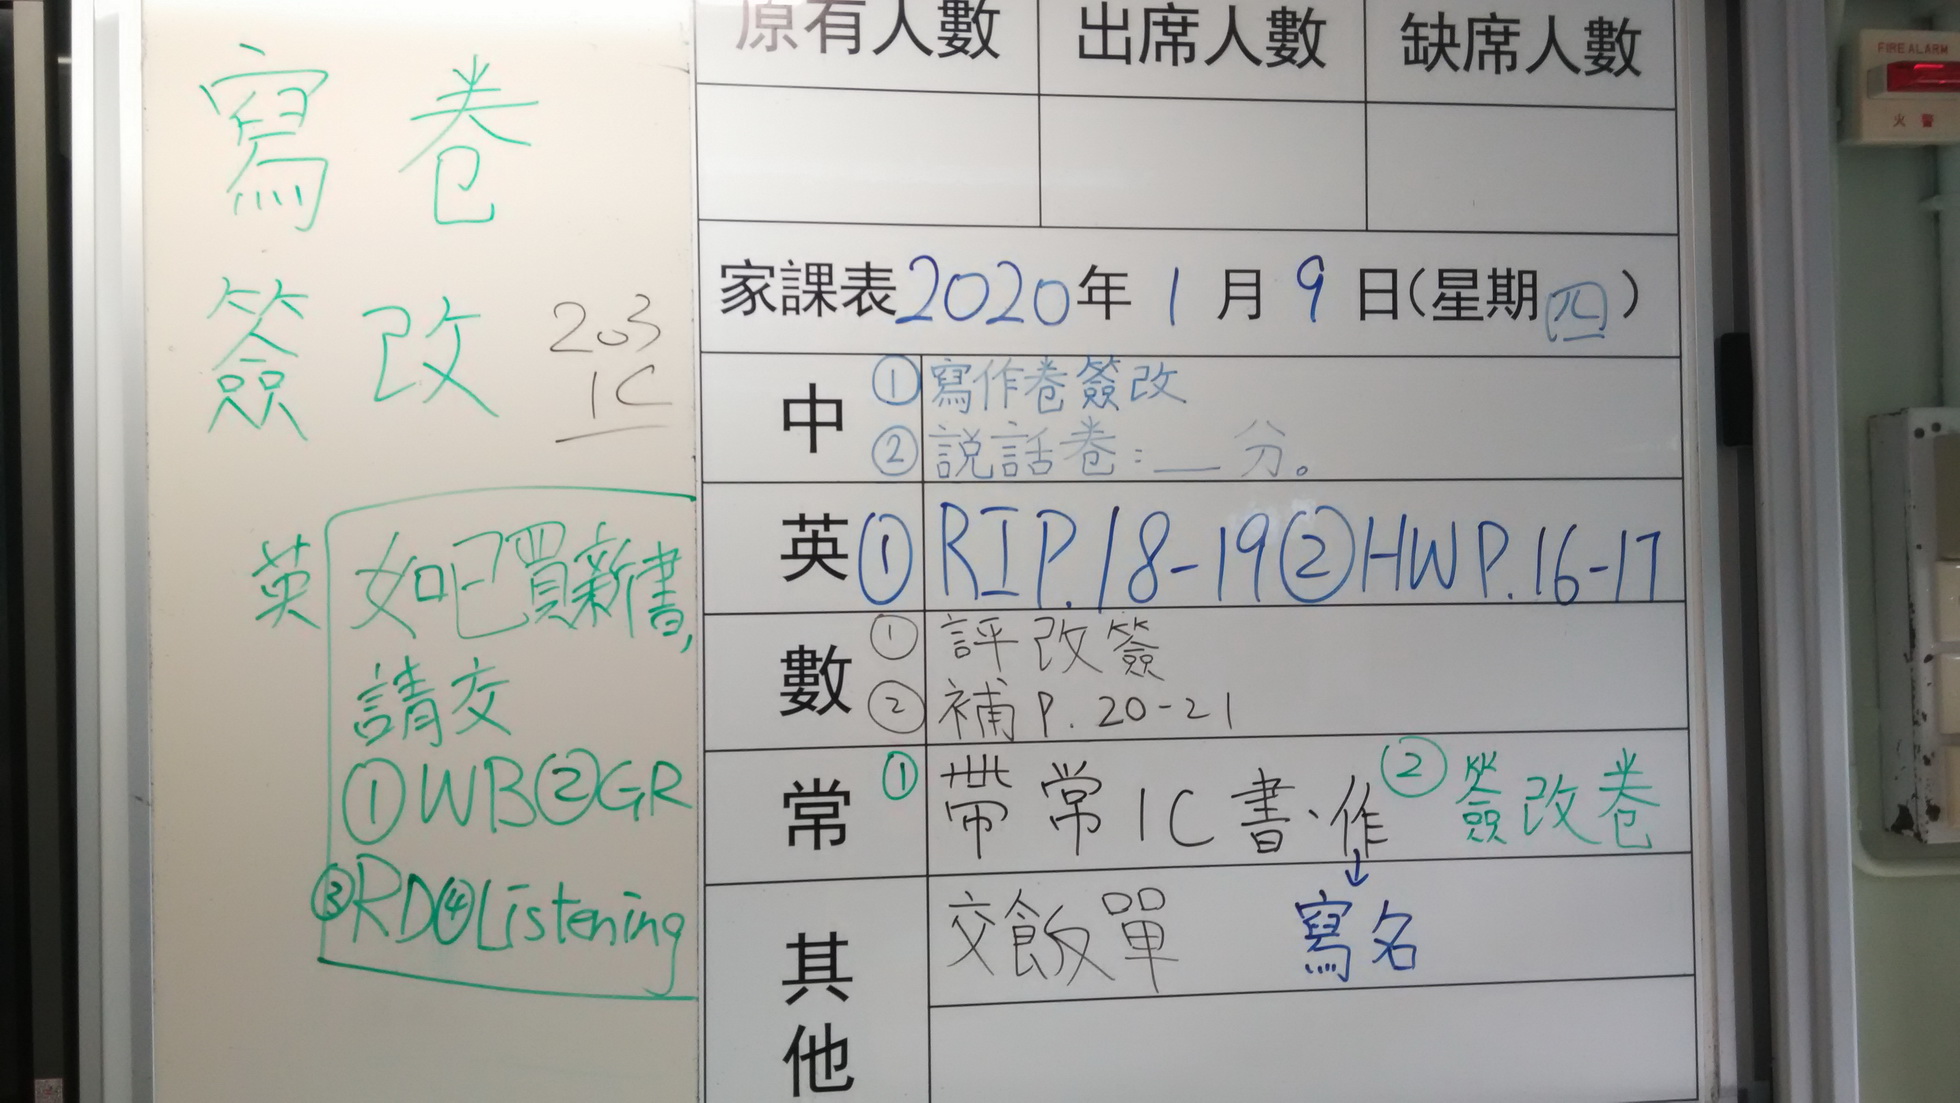 寫卷
簽改
203
1C
英
如已買新書,
請交
①WB②GR
③RD④Listening
原有人數 出席人數 缺席人數
家課表2020年1月9日(星期四)
中 ①寫作卷簽改
②說話卷:__分。
英 ①RIP.18-19②HWP.16-17
數 ①評改簽
②補P.20-21
常 ①帶常1C書、作 ②簽改卷
↓
其他 交飯單 寫名
FIRE ALARM
火警